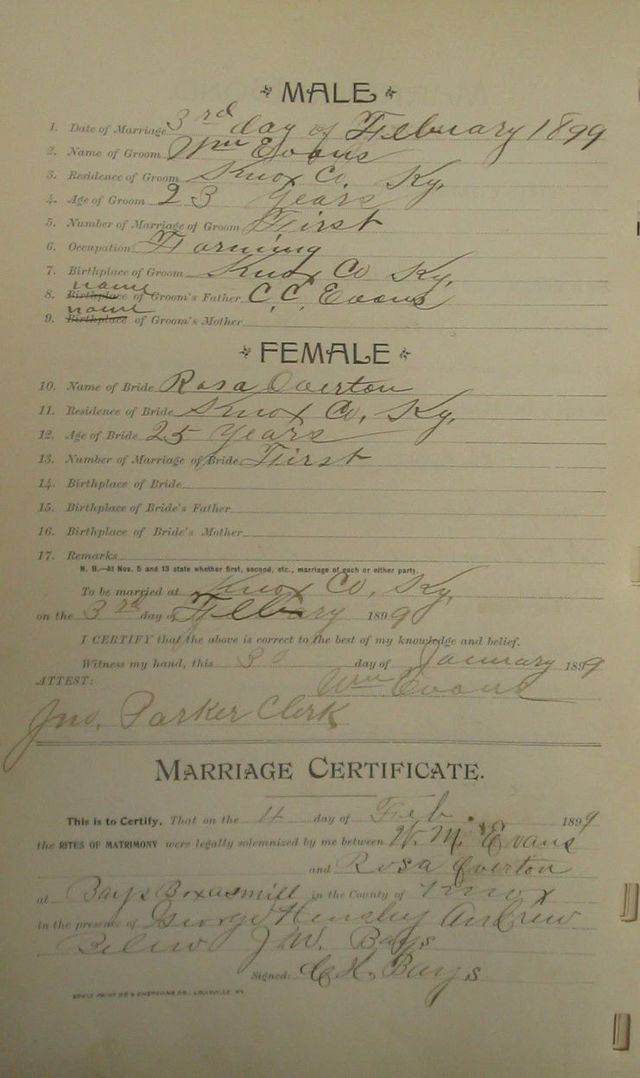 MALE
1. Date of Marriage 3rd day of February 1899
2. Name of Groom Wm Evans
3. Residence of Groom Knox Co. Ky.
4. Age of Groom 23 Years
5. Number of Marriage of Groom First
6. Occupation Farming
7. Birthplace of Groom Knox Co Ky.
name
8. Birthplace of Groom's Father C. C. Evans
name
9. Birthplace of Groom's Mother
FEMALE
10. Name of Bride Rosa Overton
11. Residence of Bride Knox Co, Ky.
12. Age of Bride 25 Years
13. Number of Marriage of Bride First
14. Birthplace of Bride
15. Birthplace of Bride's Father
16. Birthplace of Bride's Mother
17. Remarks
N. B.—At Nos. 5 and 13 state whether first, second, etc., marriage of each or either party.
To be married at Knox Co, Ky.
on the 3rd day of 1899
I CERTIFY that the above is correct to the best of my knowledge and belief.
Witness my hand, this 30 day of January 1899
ATTEST: Wm Evans
Jno. Parker Clerk
MARRIAGE CERTIFICATE.
This is to Certify, That on the 4 day of Feb. 1899
the RITES OF MATRIMONY were legally solemnized by me between W. M. Evans
and Rosa Overton
at Bays in the County of Knox
in the presence of George Hensley Andrew
J. W. Bays
Signed: C. H. Bays